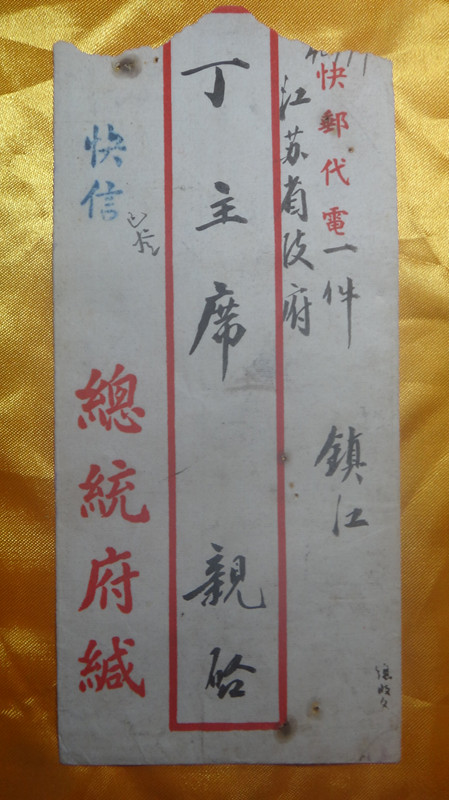 快郵代電一件　鎮江
江苏省政府
丁主席　親啟
快信
總統府緘
總收文